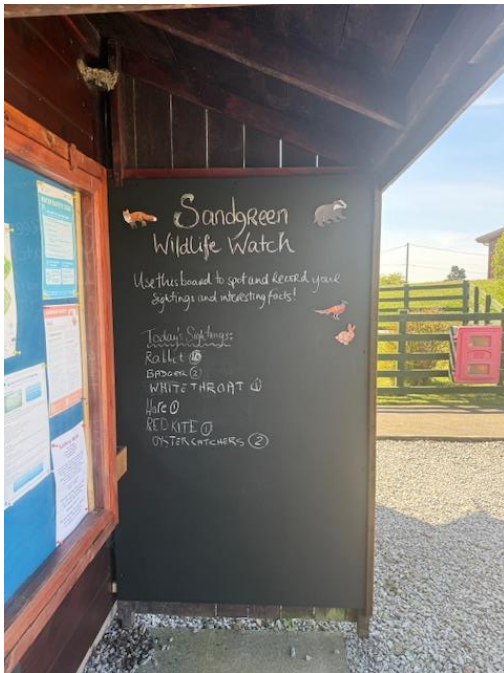 Sandgreen
Wildlife Watch
Use this board to spot and Record your
Sightings and interesting facts!
Today's Sightings:
Rabbit
BADGER 2
WHITETHROAT 1
Hare 1
RED KITE 1
OYSTERCATCHERS 2